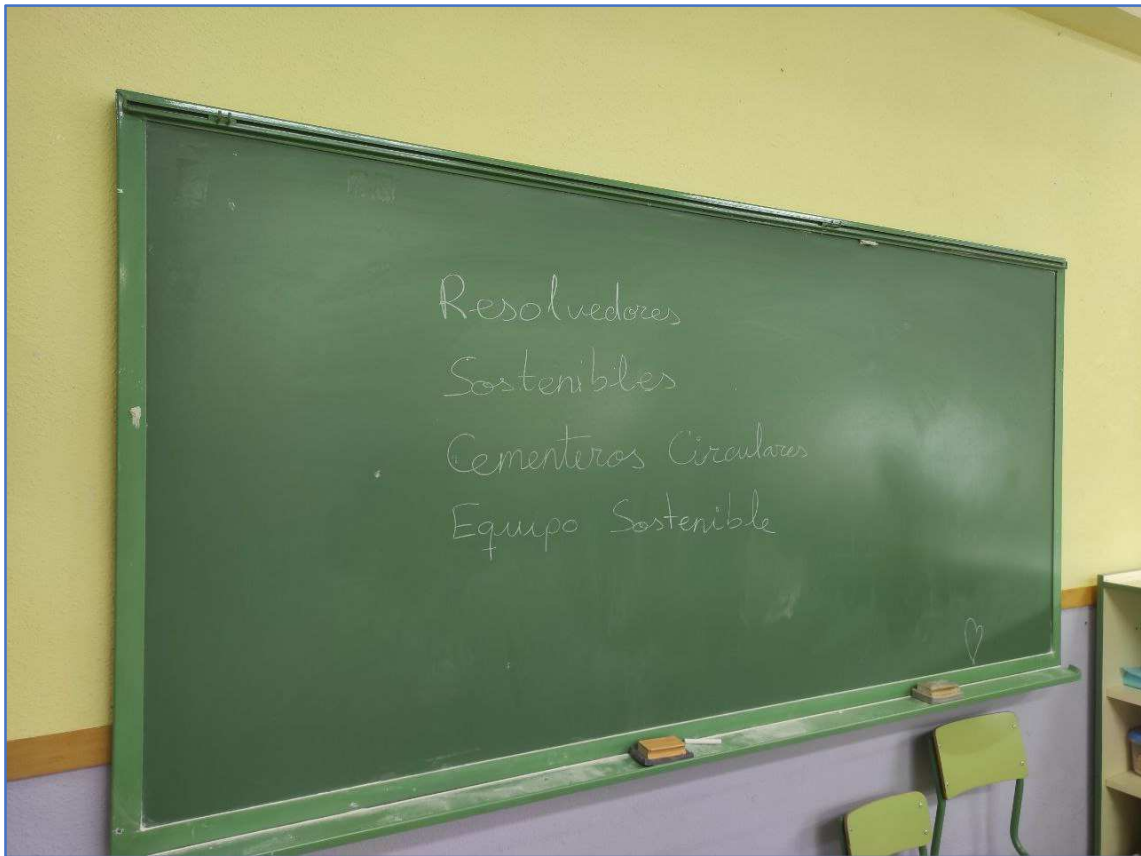 Resolvedores
Sostenibles
Cementeros Circulares
Equipo Sostenible